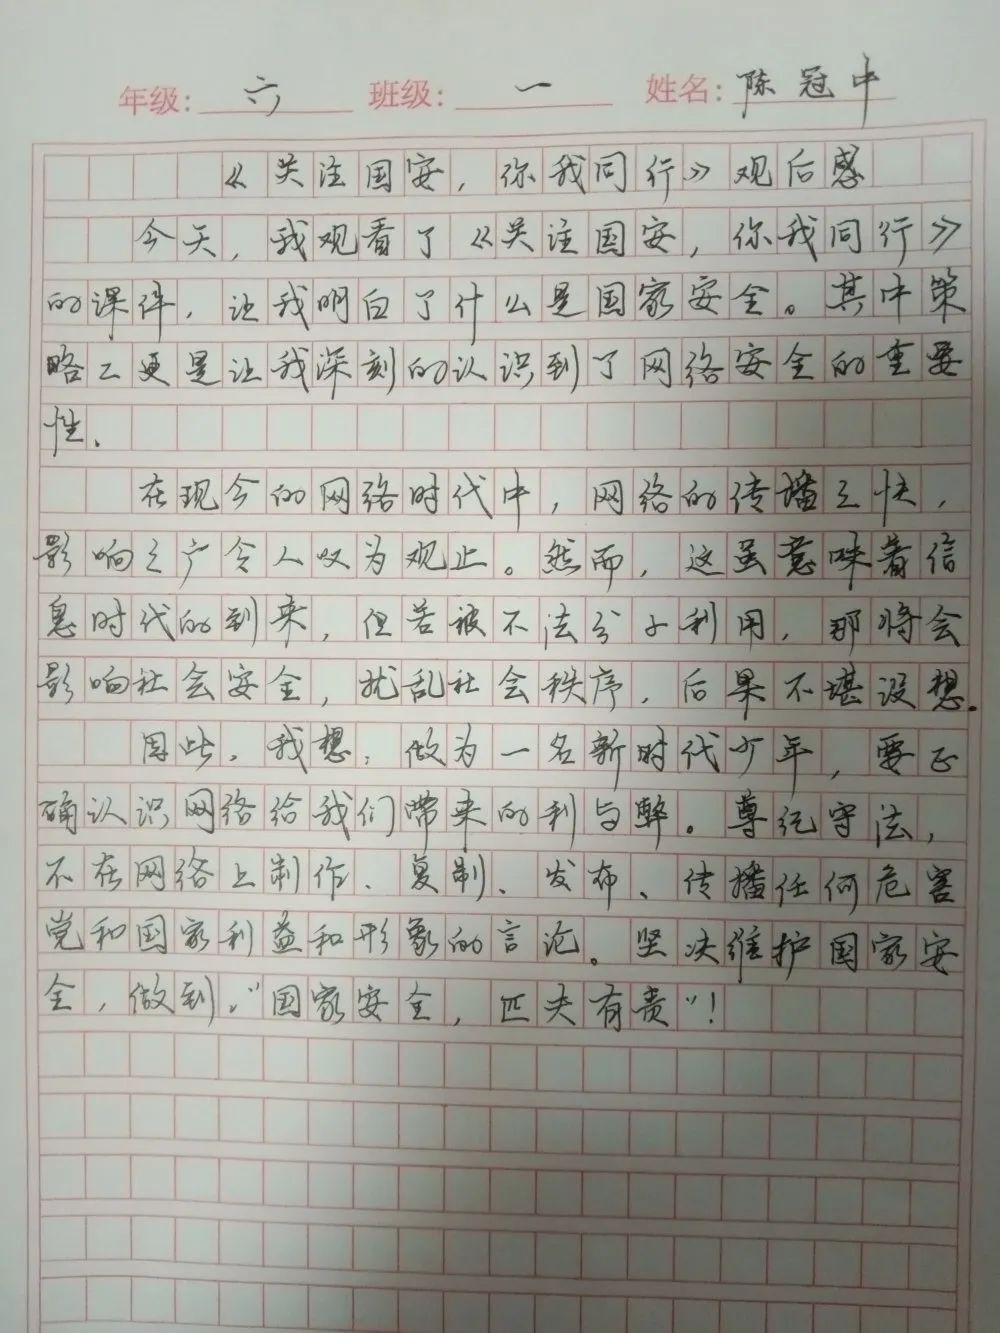 年级: 六 班级: 一 姓名: 陈冠中
《关注国安，你我同行》观后感
今天，我观看了《关注国安，你我同行》
的课件，让我明白了什么是国家安全。其中策
略二更是让我深刻的认识到了网络安全的重要
性、
在现今的网络时代中，网络的传播之快，
影响之广令人叹为观止。然而，这虽意味着信
息时代的到来，但若被不法分子利用，那将会
影响社会安全，扰乱社会秩序，后果不堪设想。
因此，我想，做为一名新时代少年，要正
确认识网络给我们带来的利与弊。尊纪守法，
不在网络上制作、复制、发布、传播任何危害
党和国家利益和形象的言论。坚决维护国家安
全，做到，“国家安全，匹夫有责”！